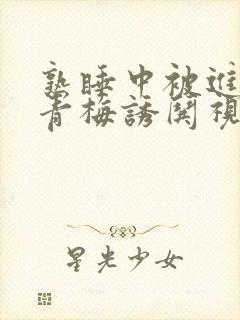 熟睡中被進
青梅誘関視
星光少女